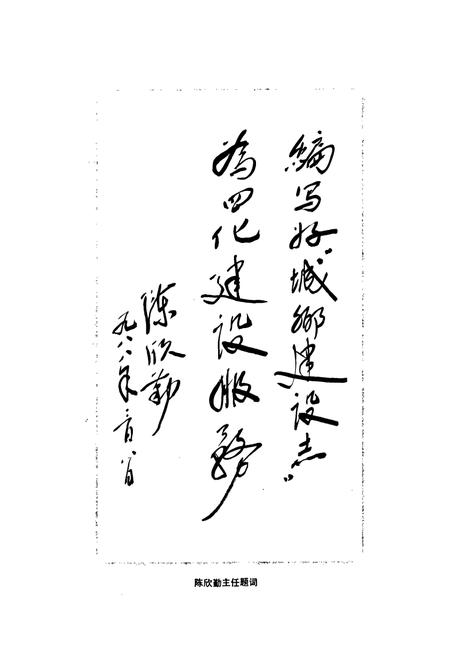 编写好“城乡建设志”
为四化建设服务
陈欣勤
一九八八年二月八日
陈欣勤主任题词